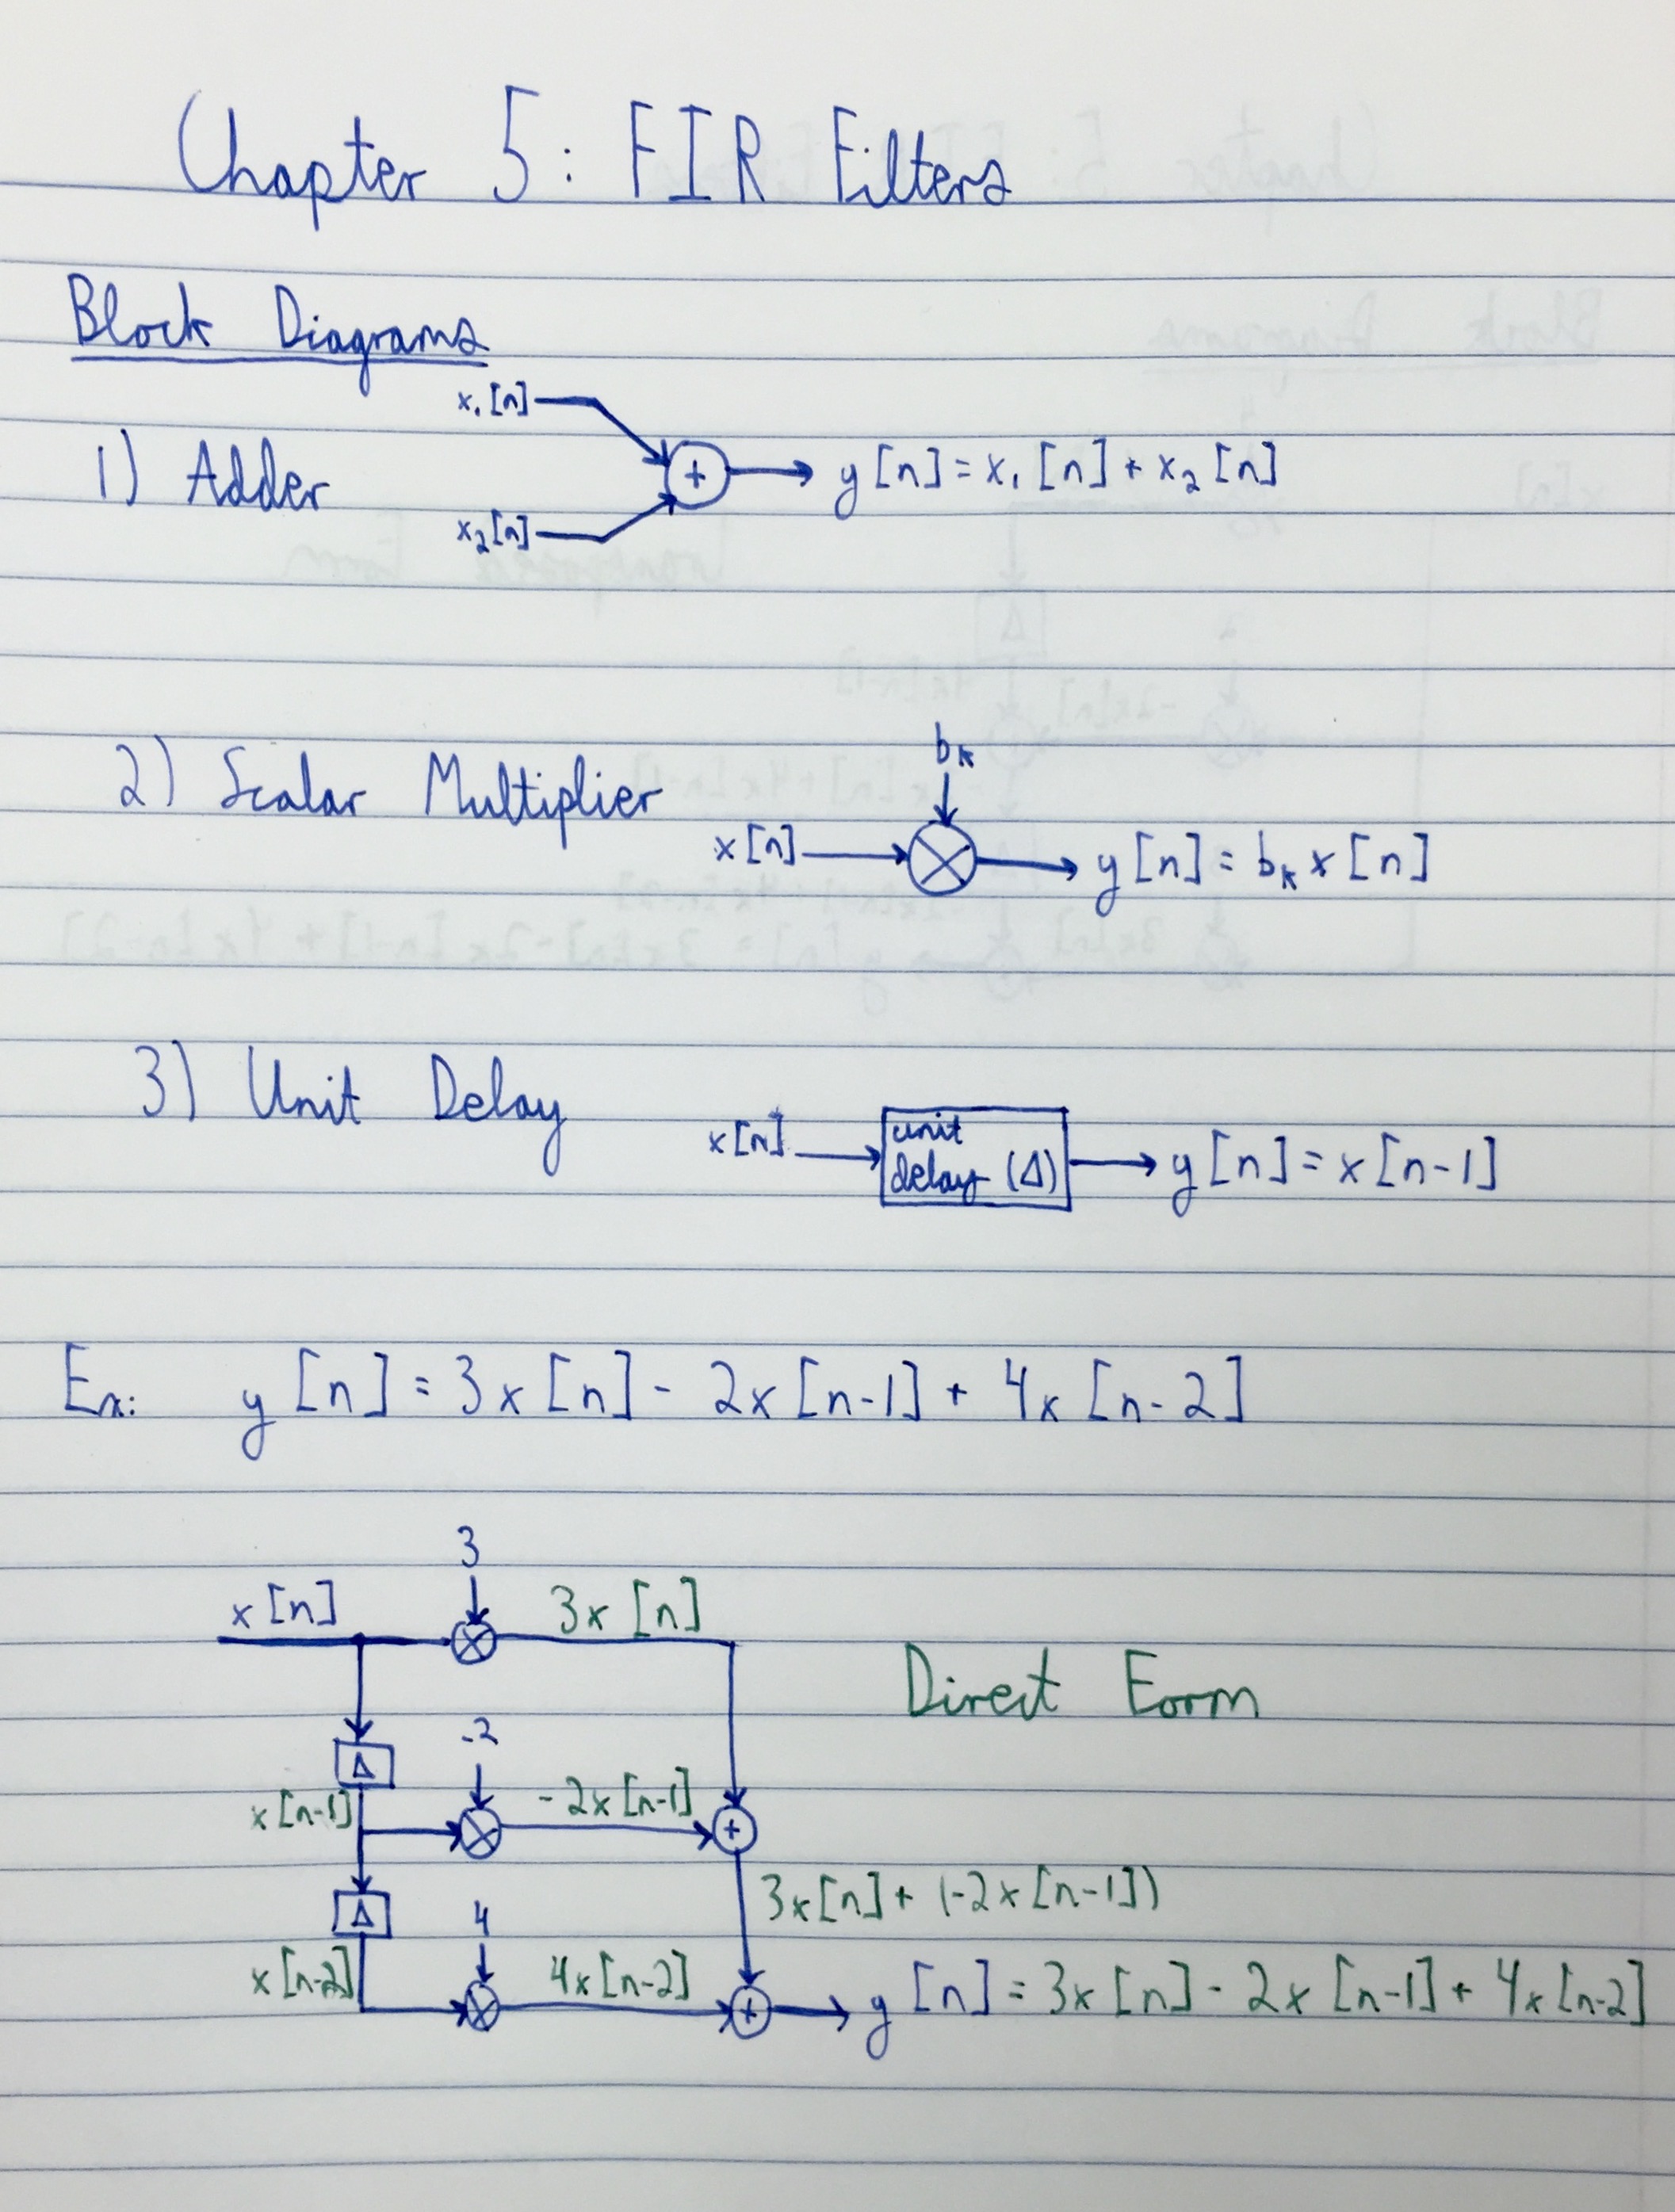 Chapter 5: FIR Filters
Block Diagrams
x₁[n]
1) Adder
+
y[n] = x₁[n] + x₂[n]
x₂[n]
2) Scalar Multiplier
bₖ
x[n]
y[n] = bₖ x[n]
3) Unit Delay
x[n]
unit
delay (Δ)
y[n] = x[n-1]
Ex: y[n] = 3x[n] - 2x[n-1] + 4x[n-2]
3
x[n]
3x[n]
Direct Form
-2
Δ
x[n-1]
-2x[n-1]
+
3x[n] + (-2x[n-1])
Δ
4
x[n-2]
4x[n-2]
+
y[n] = 3x[n] - 2x[n-1] + 4x[n-2]